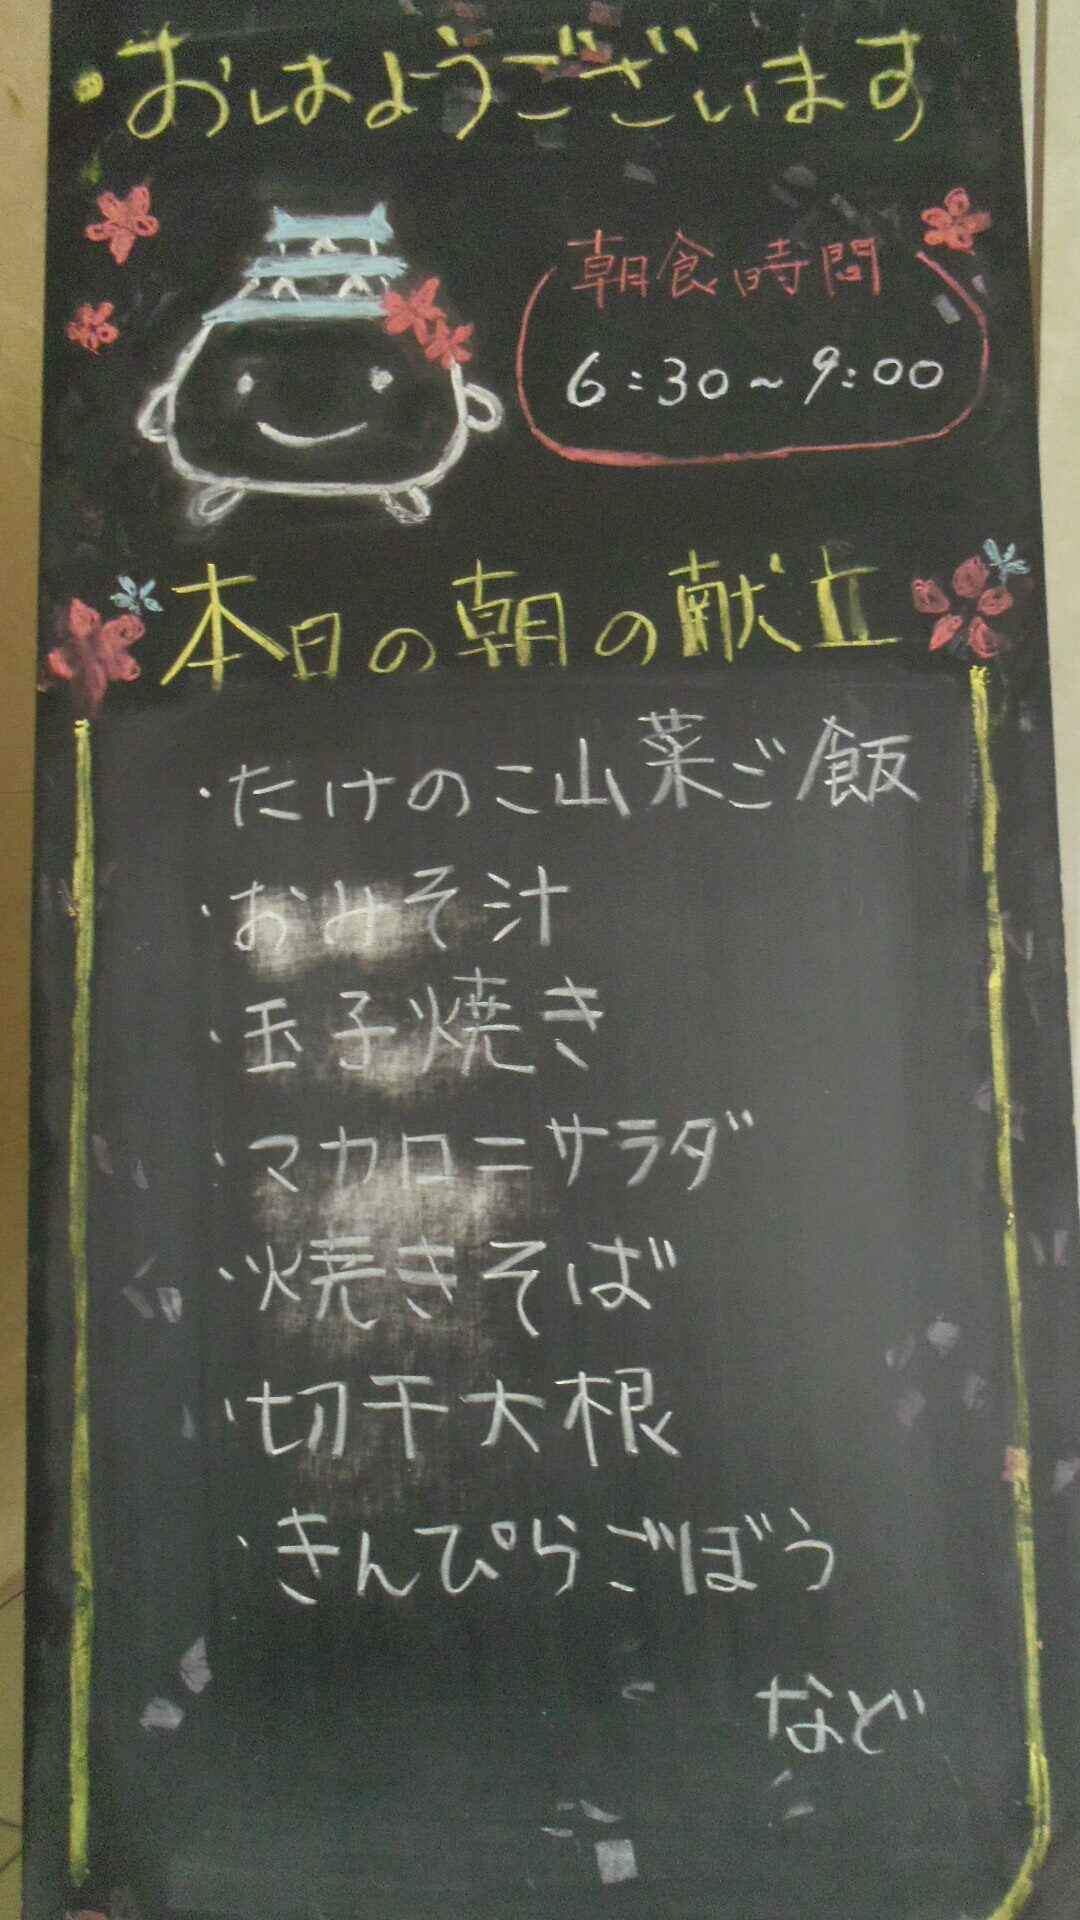 ・おはようございます
朝食時間
6:30~9:00
本日の朝の献立
・たけのこ山菜ご飯
・おみそ汁
・玉子焼き
・マカロニサラダ
・焼きそば
・切干大根
・きんぴらごぼう
など